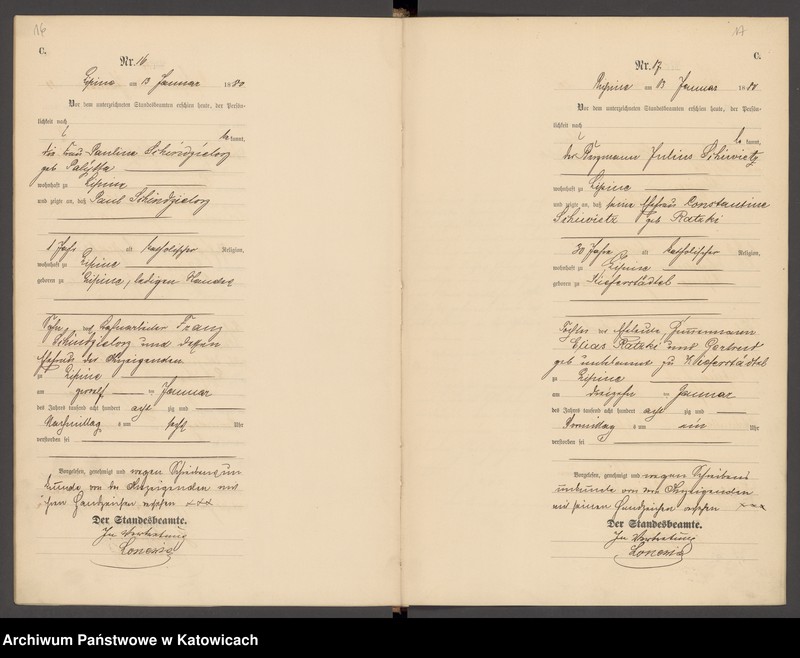 16
C.
Nr. 16
Lipine am 13 Januar 1880
Vor dem unterzeichneten Standesbeamten erschien heute, der Persön-
lichkeit nach
kannt,
die Frau Pauline Schindzielorz
geb
wohnhaft zu Lipine
und zeigte an, daß Paul Schindzielorz
1 Jahr alt katholischer Religion,
wohnhaft zu Lipine
geboren zu Lipine, ledigen Standes
Sohn des Franz
Schindzielorz und dessen
Ehefrau der Anzeigenden
zu Lipine
am zwölf ten Januar
des Jahres tausend acht hundert acht zig und
Nachmittag s um sechs Uhr
verstorben sei
Vorgelesen, genehmigt und wegen Schreibensun
kunde von der Anzeigenden mit
ihrem Handzeichen versehen xxx
Der Standesbeamte.
In Vertretung
17
C.
Nr. 17.
Lipine am 13 Januar 1880
Vor dem unterzeichneten Standesbeamten erschien heute, der Persön-
lichkeit nach
be kannt,
der Bergmann Julius Schiwietz
wohnhaft zu Lipine
und zeigte an, daß seine Ehefrau Constantine
Schiwietz geb Ratzki
30 Jahre alt katholischer Religion,
wohnhaft zu Lipine
geboren zu Kieferstädtel
Tochter der Eheleute
Elias Ratzki und Gertrud
geb unbekannt zu Kieferstädtel
zu Lipine
am dreizehn ten Januar
des Jahres tausend acht hundert acht zig und
Vormittag s um ein Uhr
verstorben sei
Vorgelesen, genehmigt und wegen Schreibens
unkunde von dem Anzeigenden
mit seinem Handzeichen versehen xxx
Der Standesbeamte.
In Vertretung
Archiwum Państwowe w Katowicach